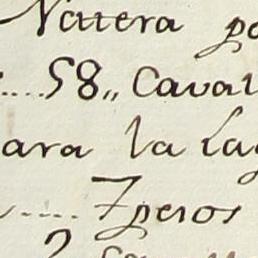 Natera po
58,, Caval
ara la lag
7 pesos
2